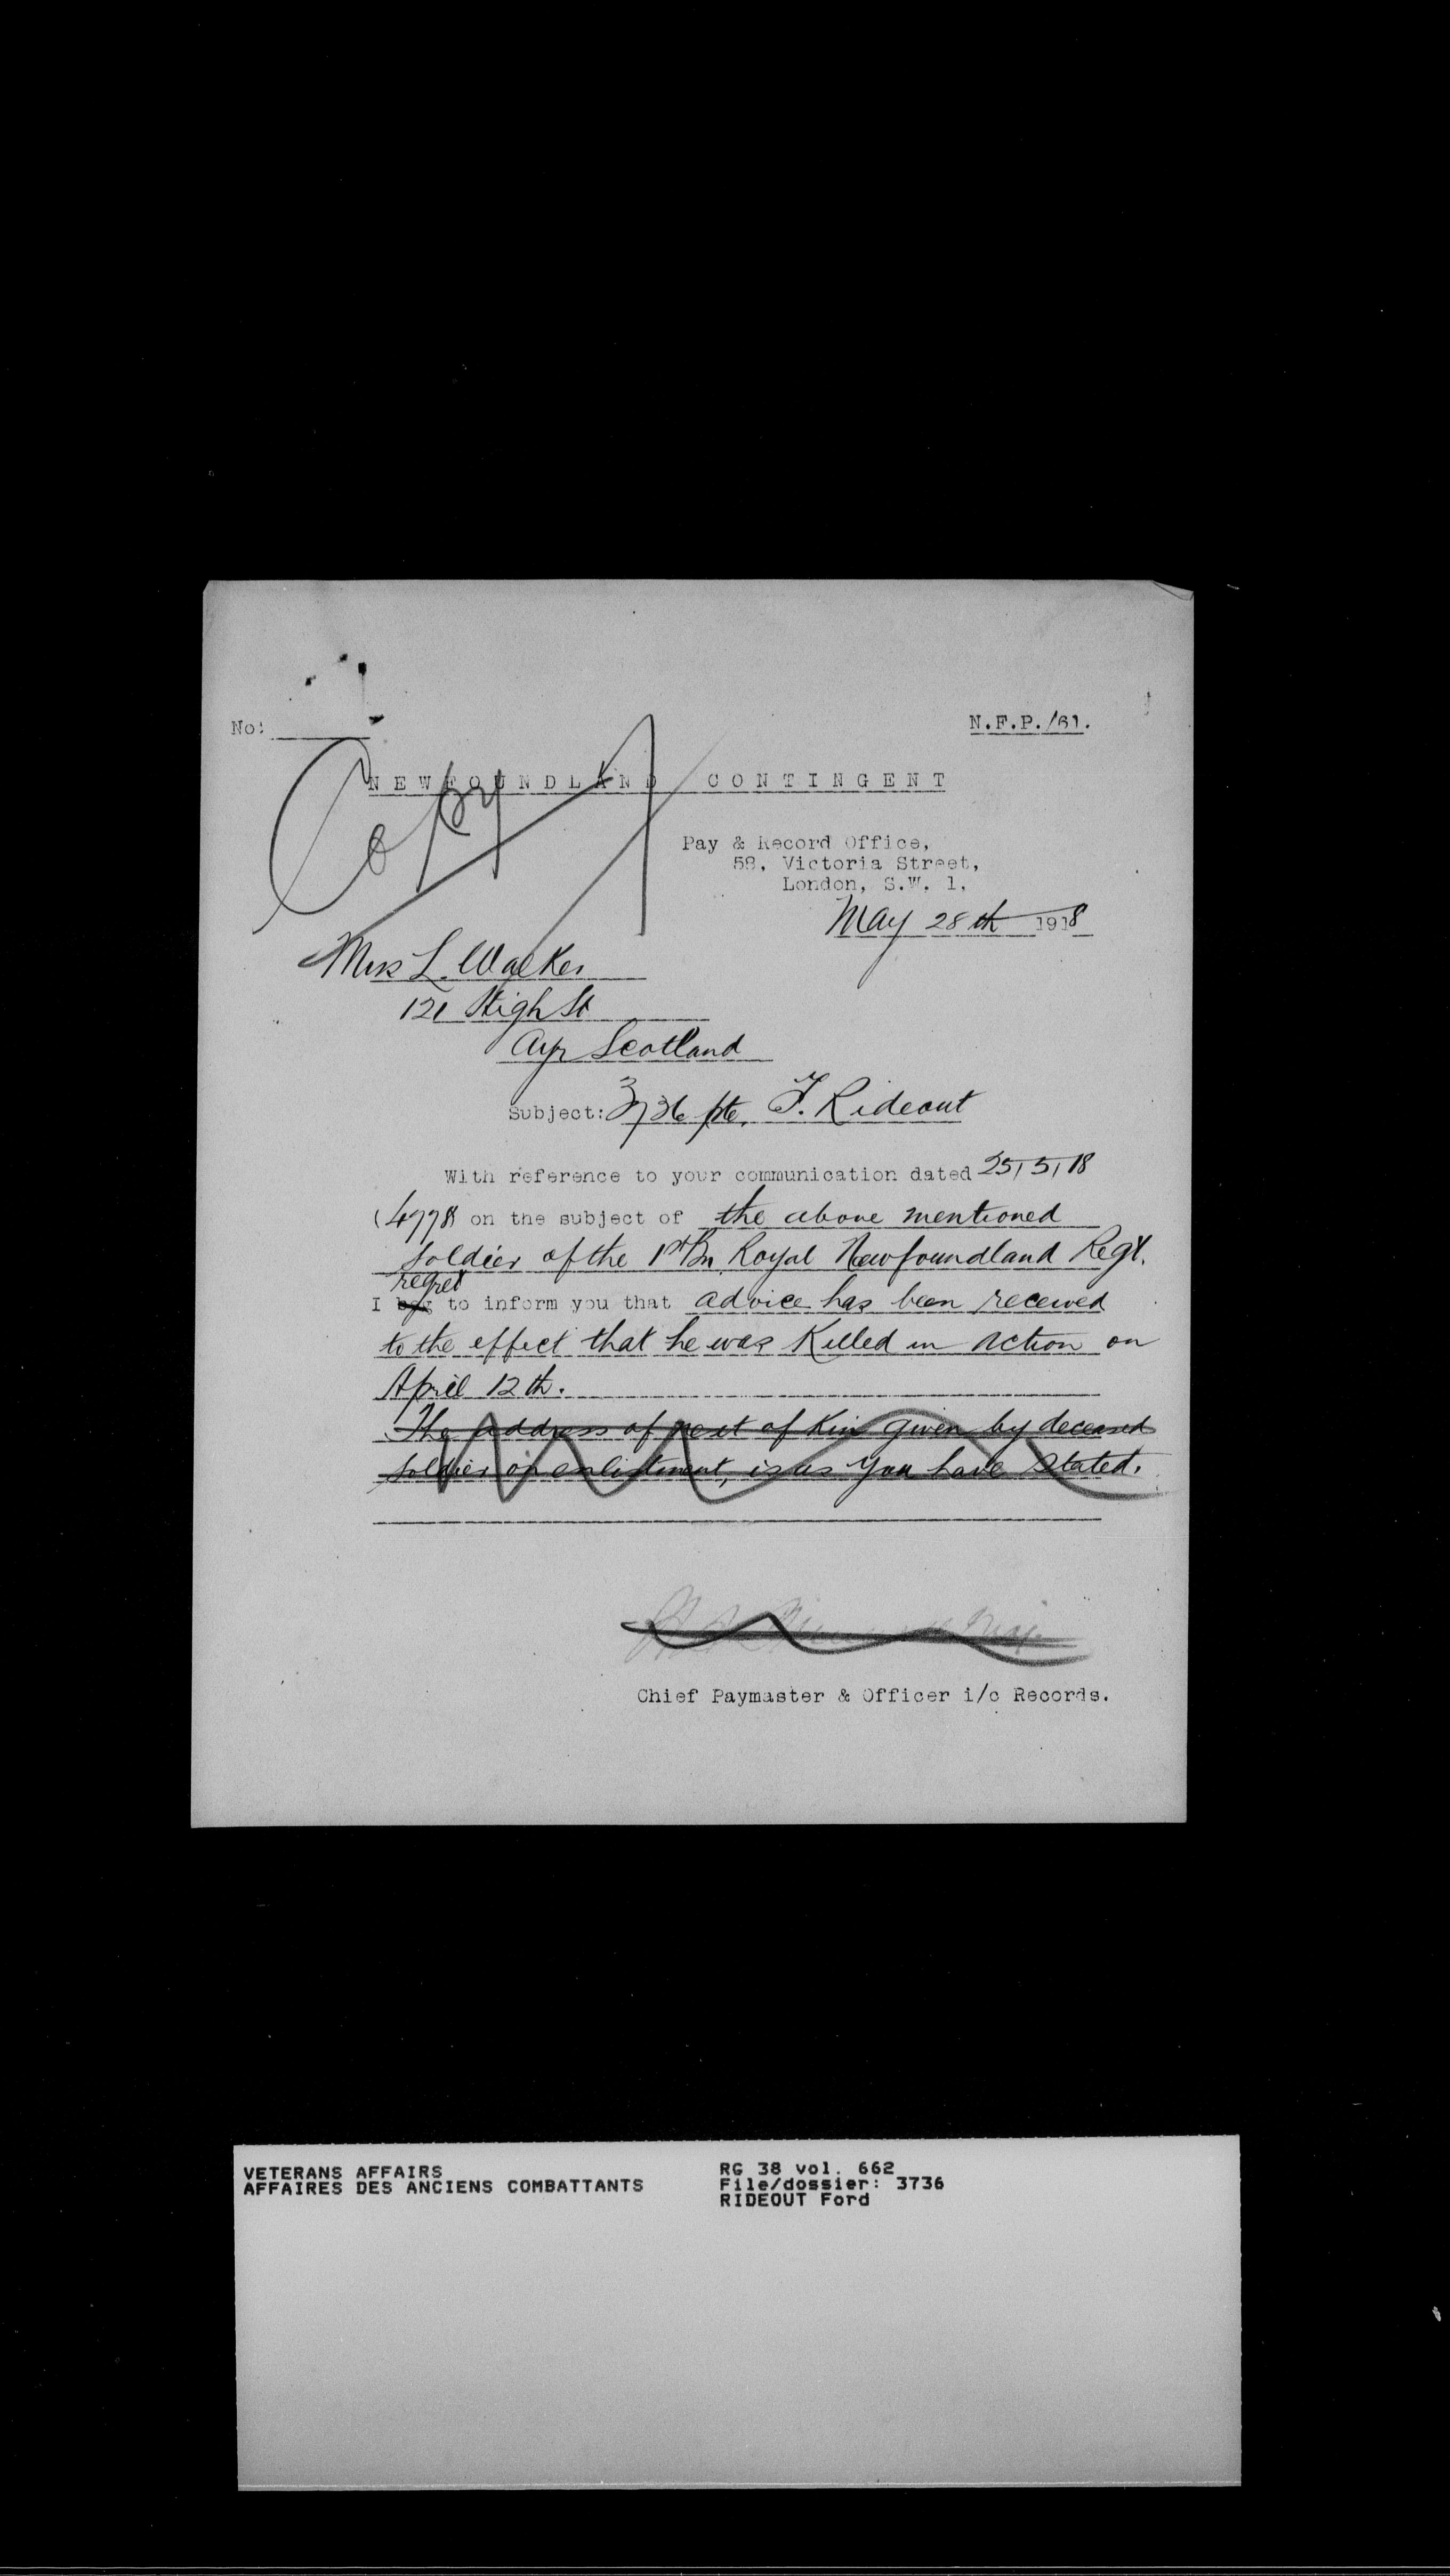 No:
N.F.P./61.
Copy
NEWFOUNDLAND CONTINGENT
Pay & Record Office,
58, Victoria Street,
London, S.W. 1,
May 28th 1918
Miss L. Walker
121 High St
Ayr Scotland
Subject: 3736 Pte. F. Rideout
With reference to your communication dated 25/5/18
(4778) on the subject of the above mentioned
soldier of the 1st Bn Royal Newfoundland Regt.
regret
I beg to inform you that advice has been received
to the effect that he was Killed in action on
April 12th.
The address of next of Kin given by deceased
soldier on enlistment, is as you have stated.
Chief Paymaster & Officer i/c Records.
VETERANS AFFAIRS
AFFAIRES DES ANCIENS COMBATTANTS
RG 38 vol. 662
File/dossier: 3736
RIDEOUT Ford